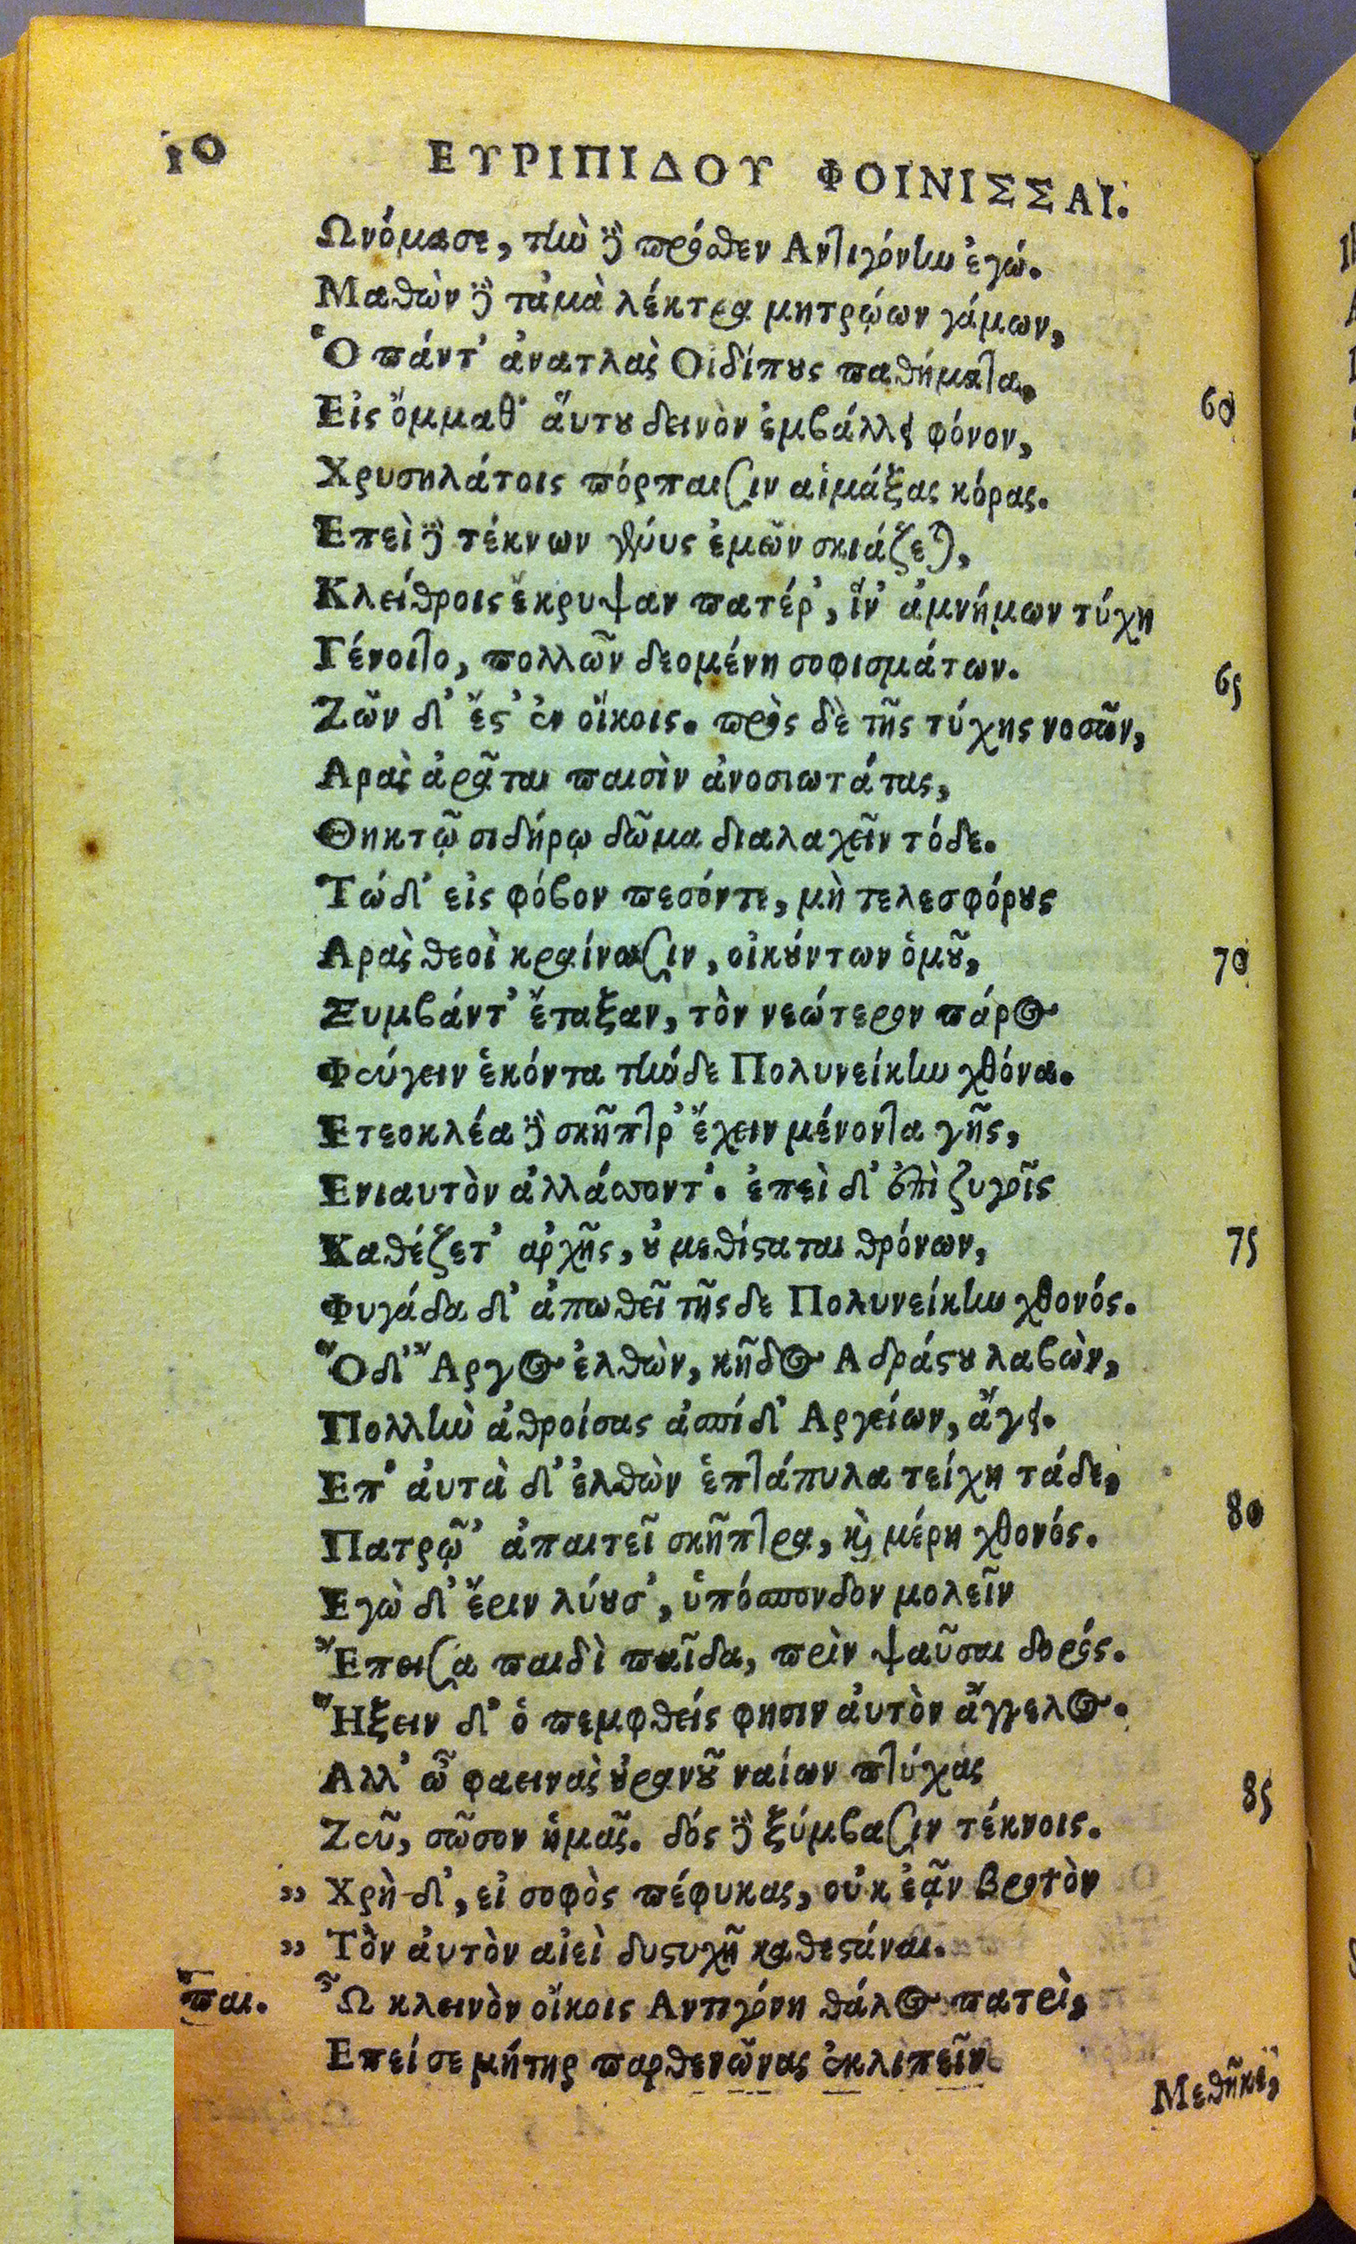 10 ΕΥΡΙΠΙΔΟΥ ΦΟΙΝΙΣΣΑΙ.
Ωνόμασε, τὴν δὲ πρόσθεν Αντιγόνην ἐγώ.
Μαθὼν δὲ τἀμὰ λέκτρα μητρῴων γάμων,
Ὁ πάντ' ἀνατλὰς Οἰδίπους παθήματα.
Εἰς ὄμμαθ' ἅυτου δεινὸν ἐμβάλλει φόνον, 60
Χρυσηλάτοις πόρπαισιν αἱμάξας κόρας.
Επεὶ δὲ τέκνων γένυς ἐμῶν σκιάζεται,
Κλείθροις ἔκρυψαν πατέρ', ἵν' ἀμνήμων τύχη
Γένοιτο, πολλῶν δεομένη σοφισμάτων.
Ζῶν δ' ἔστ' ἐν οἴκοις. πρὸς δὲ τῆς τύχης νοσῶν, 65
Αρὰς ἀρᾶται παισὶν ἀνοσιωτάτας,
Θηκτῷ σιδήρῳ δῶμα διαλαχεῖν τόδε.
Τώδ' εἰς φόβον πεσόντε, μὴ τελεσφόρους
Αρὰς θεοὶ κραίνωσιν, οἰκούντων ὁμοῦ, 70
Ξυμβάντ' ἔταξαν, τὸν νεώτερον πάρος
Φεύγειν ἑκόντα τήνδε Πολυνείκην χθόνα.
Ετεοκλέα δὲ σκῆπτρ' ἔχειν μένοντα γῆς,
Ενιαυτὸν ἀλλάσσοντ'. ἐπεὶ δ' ἐπὶ ζυγοῖς
Καθέζετ' ἀρχῆς, οὐ μεθίσταται θρόνων, 75
Φυγάδα δ' ἀπωθεῖ τῆςδε Πολυνείκην χθονός.
Ὃδ' Ἄργος ἐλθὼν, κῆδος Αδράστου λαβὼν,
Πολλὴν ἀθροίσας ἀσπίδ' Αργείων, ἄγει.
Επ' ἀυτὰ δ' ἐλθὼν ἑπτάπυλα τείχη τάδε,
Πατρῷ' ἀπαιτεῖ σκῆπτρα, καὶ μέρη χθονός. 80
Εγὼ δ' ἔριν λύουσ', ὑπόσπονδον μολεῖν
Ἔπεισα παιδὶ παῖδα, πρὶν ψαῦσαι δορός.
Ἥξειν δ' ὁ πεμφθείς φησιν ἀυτὸν ἄγγελος.
Αλλ' ὦ φαεινὰς οὐρανοῦ ναίων πτύχας
Ζεῦ, σῶσον ἡμᾶς. δός δὲ ξύμβασιν τέκνοις. 85
„ Χρὴ δ', εἰ σοφὸς πέφυκας, οὐκ ἐᾷν βροτὸν
„ Τὸν ἀυτὸν αἰεὶ δυςυχῆ καθεστάναι.
παι. Ὦ κλεινὸν οἴκοις Αντιγόνη θάλος πατρὶ,
Επεί σε μήτηρ παρθενῶνας ἐκλιπεῖν
Μεθῆκε,